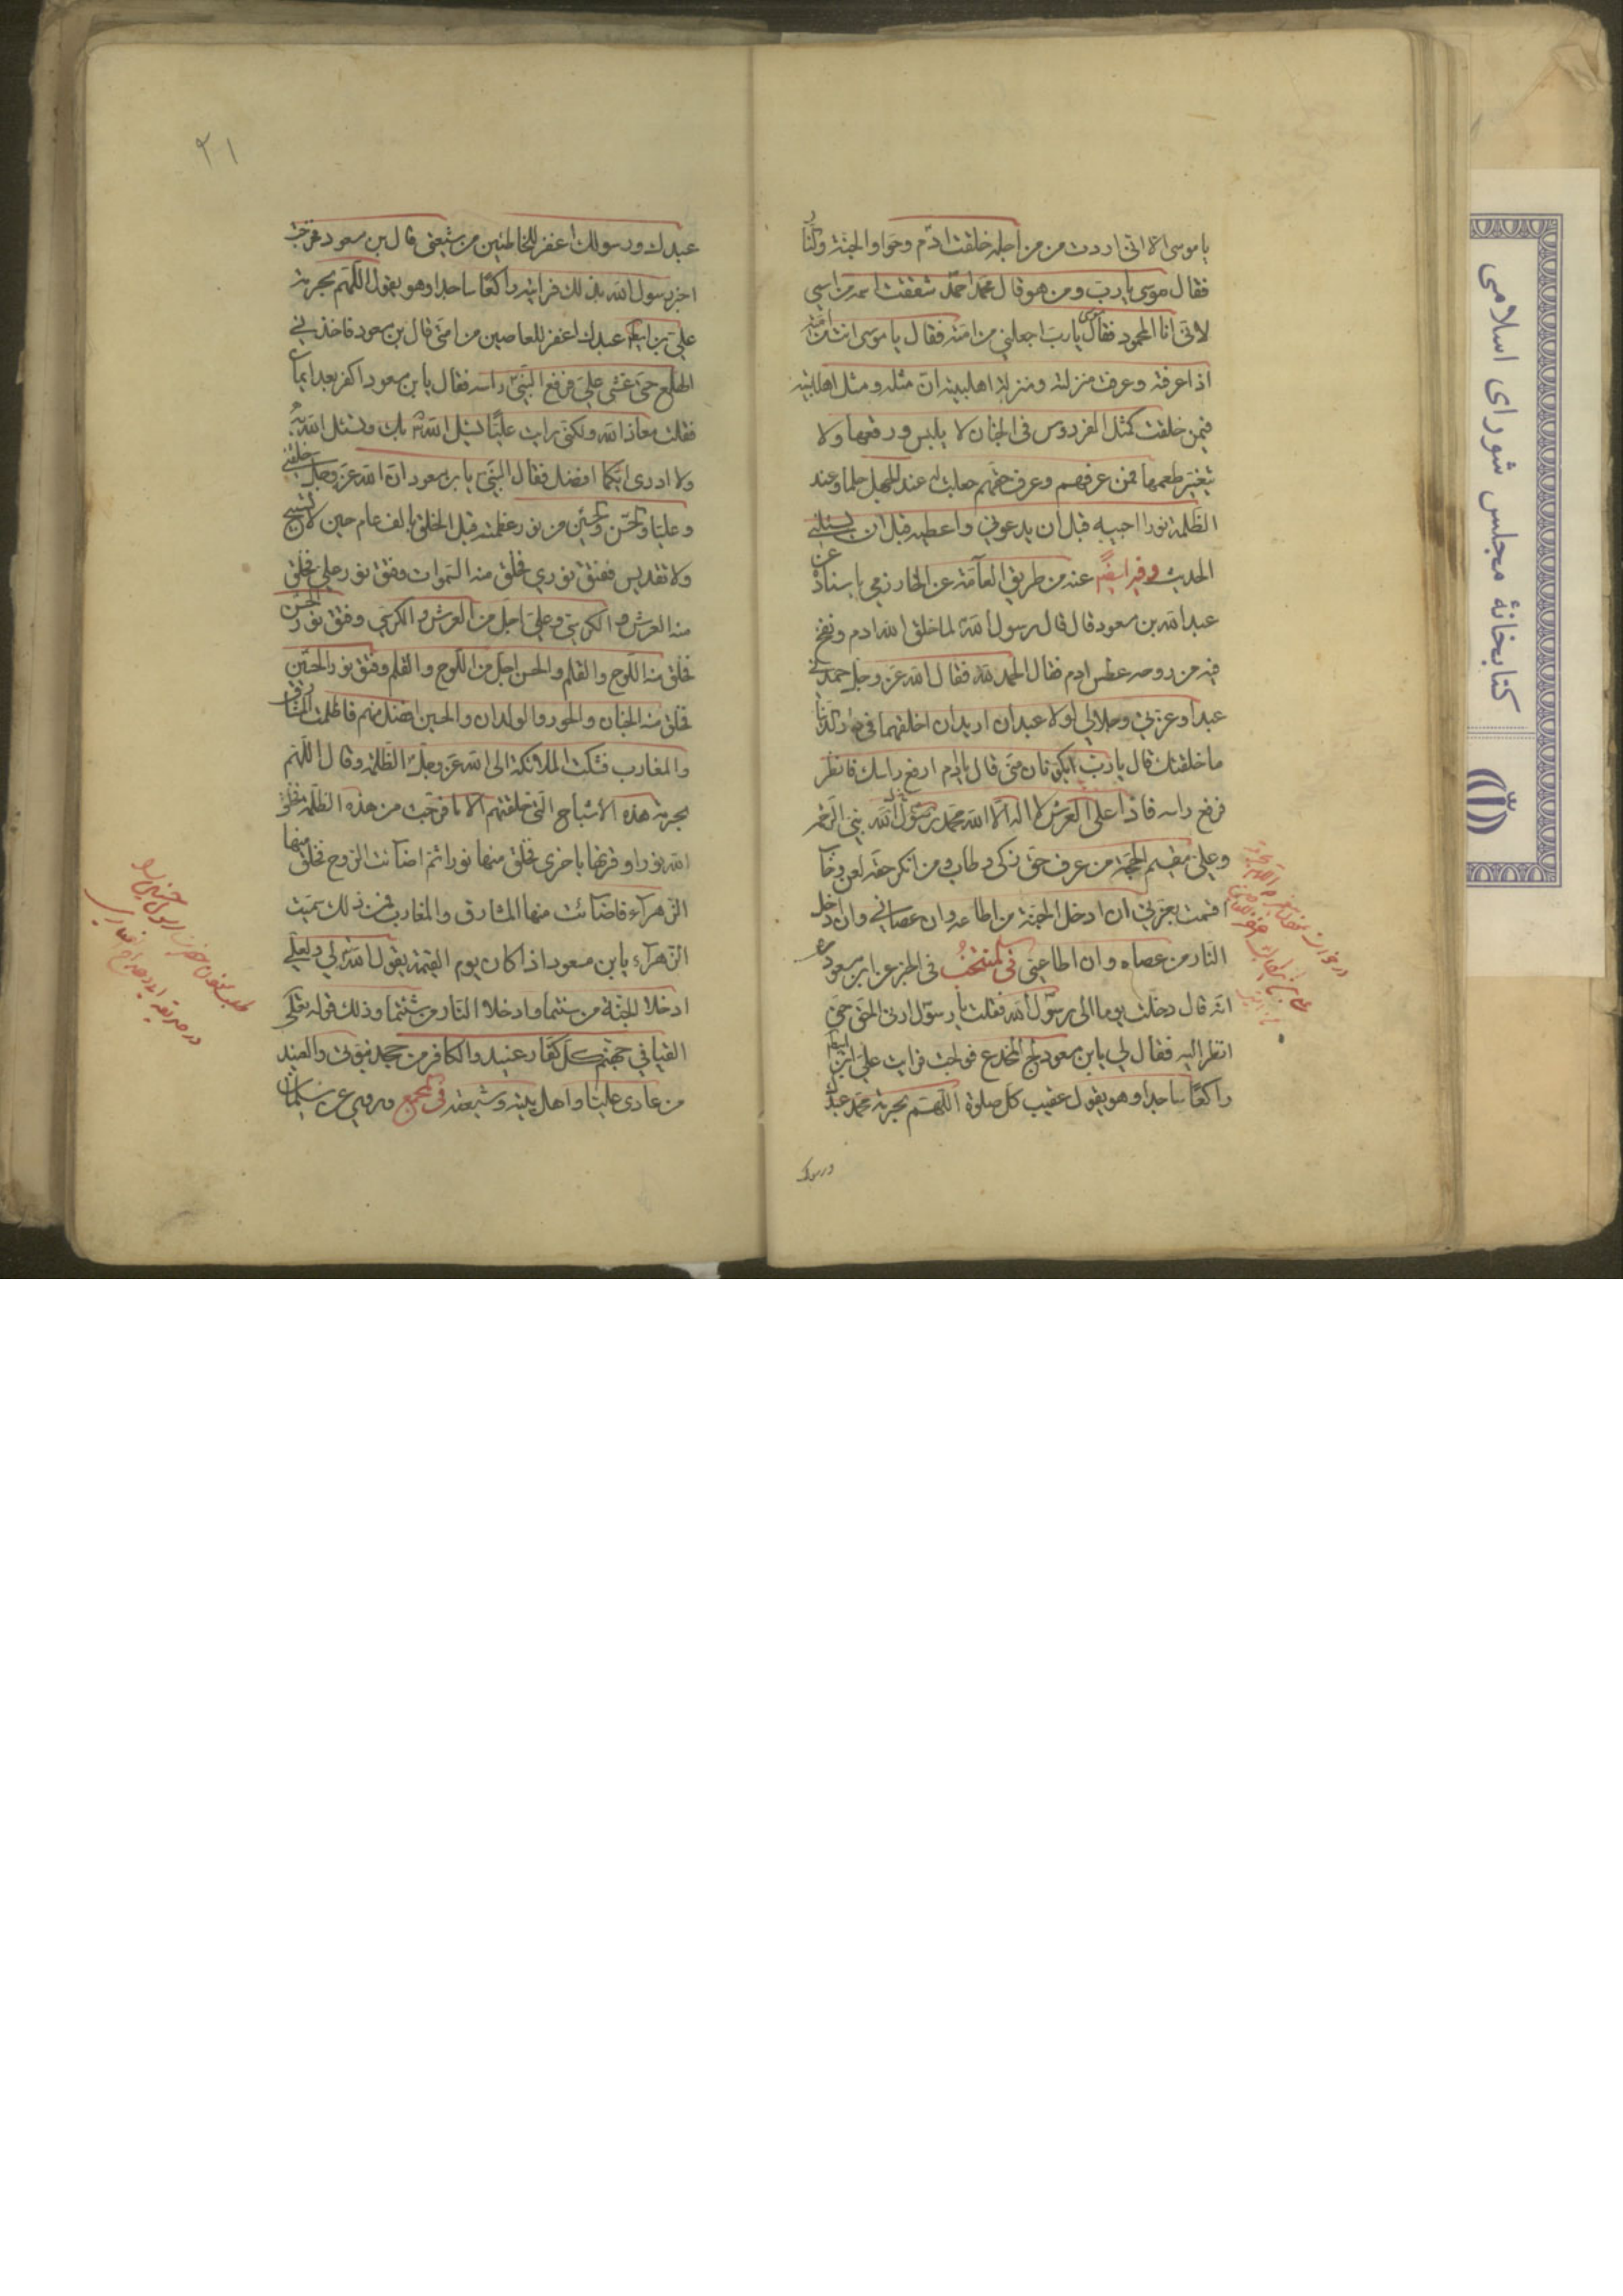 يا موسى الا انى اردت من من اجله خلقت ادم وحوا والجنة والنار
فقال موسى يارب ومن هو قال محمد احمد شققت اسمه من اسمى
لانى انا المحمود فقال موسى يارب اجعلنى من امته فقال يا موسى انت من امته
اذا عرفته وعرفت منزلته ومنزلة اهلبيته ان مثله ومثل اهلبيته
فيمن خلقت كمثل الفردوس فى الجنان لا ييبس ورقها ولا
يتغير طعمها فمن عرفهم وعرف حقهم جعلت له عند الجهل حلما وعند
الظلمة نورا اجيبه قبل ان يدعونى واعطيه قبل ان يسئلنى
الحديث وفيه ايضا عنه من طريق العامة عن الخوارزمى باسناده عن
عبد الله بن مسعود قال قال رسول الله لما خلق الله ادم ونفخ
فيه من روحه عطس ادم فقال الحمد لله فقال الله عز وجل حمدنى
عبدى وعزتى وجلالى لولا عبدان اريد ان اخلقهما فى دار الدنيا
ما خلقتك قال يارب ايكونان منى قال يا ادم ارفع راسك فانظر
فرفع راسه فاذا على العرش لا اله الا الله محمد رسول الله نبى الرحمة
وعلى مقيم الحجة من عرف حق زكى وطاب ومن انكر حقه لعن وخاب
اقسمت بعزتى ان ادخل الجنة من اطاعه وان عصانى وان ادخل
النار من عصاه وان اطاعنى فى المنتخب فى الخبر عن ابن مسعود
انه قال دخلت يوما الى رسول الله فقلت يا رسول ارنى الحق حتى
انظر اليه فقال لى يا ابن مسعود لج المخدع فولجت فرايت على ابن ابيطالب
راكعا ساجدا وهو يقول عقيب كل صلوة اللهم بحرمة محمد عبدك
ورسولك
٢١
عبدك ورسولك اغفر للخاطئين من شيعتى قال بن مسعود فخرجت
اخبر رسول الله بذلك فرايته راكعا ساجدا وهو يقول اللهم بحرمة
على بن ابيطالب عبدك اغفر للعاصين من امتى قال بن مسعود فاخذنى
الهلع حتى غشى على فرفع النبى راسه فقال يا بن مسعود اكفر بعد ايمان
فقلت معاذ الله ولكنى رايت عليا يسئل الله بك وتسئل الله به
ولا ادرى ايكما افضل فقال النبى يا بن مسعود ان الله عز وجل خلقنى
وعليا والحسن والحسين من نور عظمته قبل الخلق بالف عام حين لا تسبيح
ولا تقديس ففتق نورى فخلق منه السموات وفتق نور على فخلق
منه العرش والكرسى وعلى اجل من العرش والكرسى وفتق نور الحسن
فخلق منه اللوح والقلم والحسن اجل من اللوح والقلم وفتق نور الحسين
فخلق منه الجنان والحور والولدان والحسين افضل منهم فاظلمت المشارق
والمغارب فشكت الملائكة الى الله عز وجل الظلمة وقال اللهم
بحرمة هذه الاشباح التى خلقتهم الا ما فرجت من هذه الظلمة فخلق
الله نورا وقرنها باخرى فخلق منها نورا ثم اضائت الروح فخلق منها
الزهراء فاضائت منها المشارق والمغارب فمن ذلك سميت
الزهراء يا بن مسعود اذا كان يوم القيمة يقول الله لى ولعلى
ادخلا الجنة من شئتما وادخلا النار من شئتما وذلك قوله تعالى
القيا فى جهنم كل كفار عنيد والكافر من جحد نبوتى والعنيد
من عادى عليا واهل بيته وشيعته فى المجمع وروى عن سلمان
کتابخانهٔ مجلس شورای اسلامی